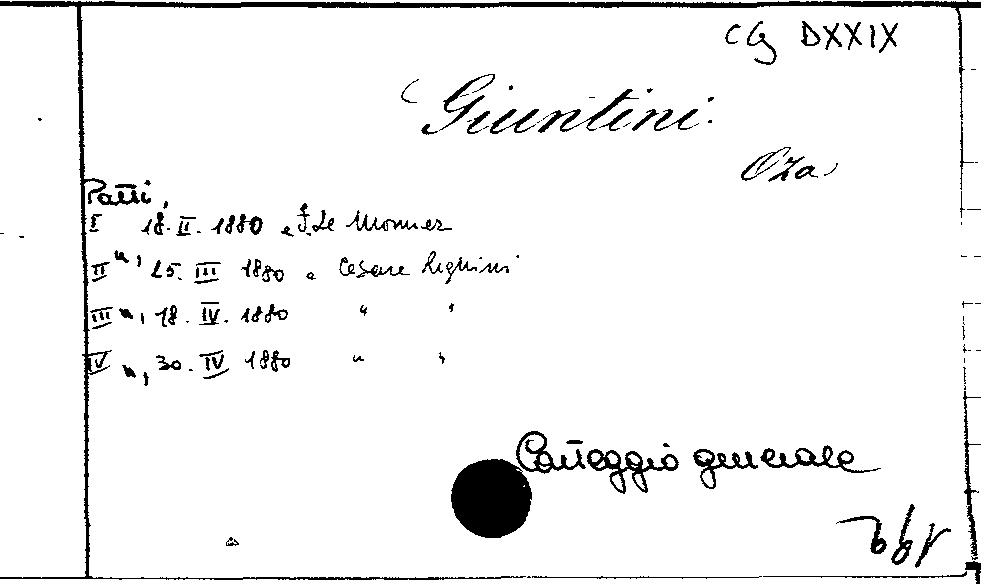 CG DXXIX
Giuntini
Oza
Patti,
I 18. II. 1880 a F. Le Monnier
II ", 25. III 1880 a Cesare Righini
III ", 18. IV. 1880 " "
IV ", 30. IV 1880 " "
Carteggio generale